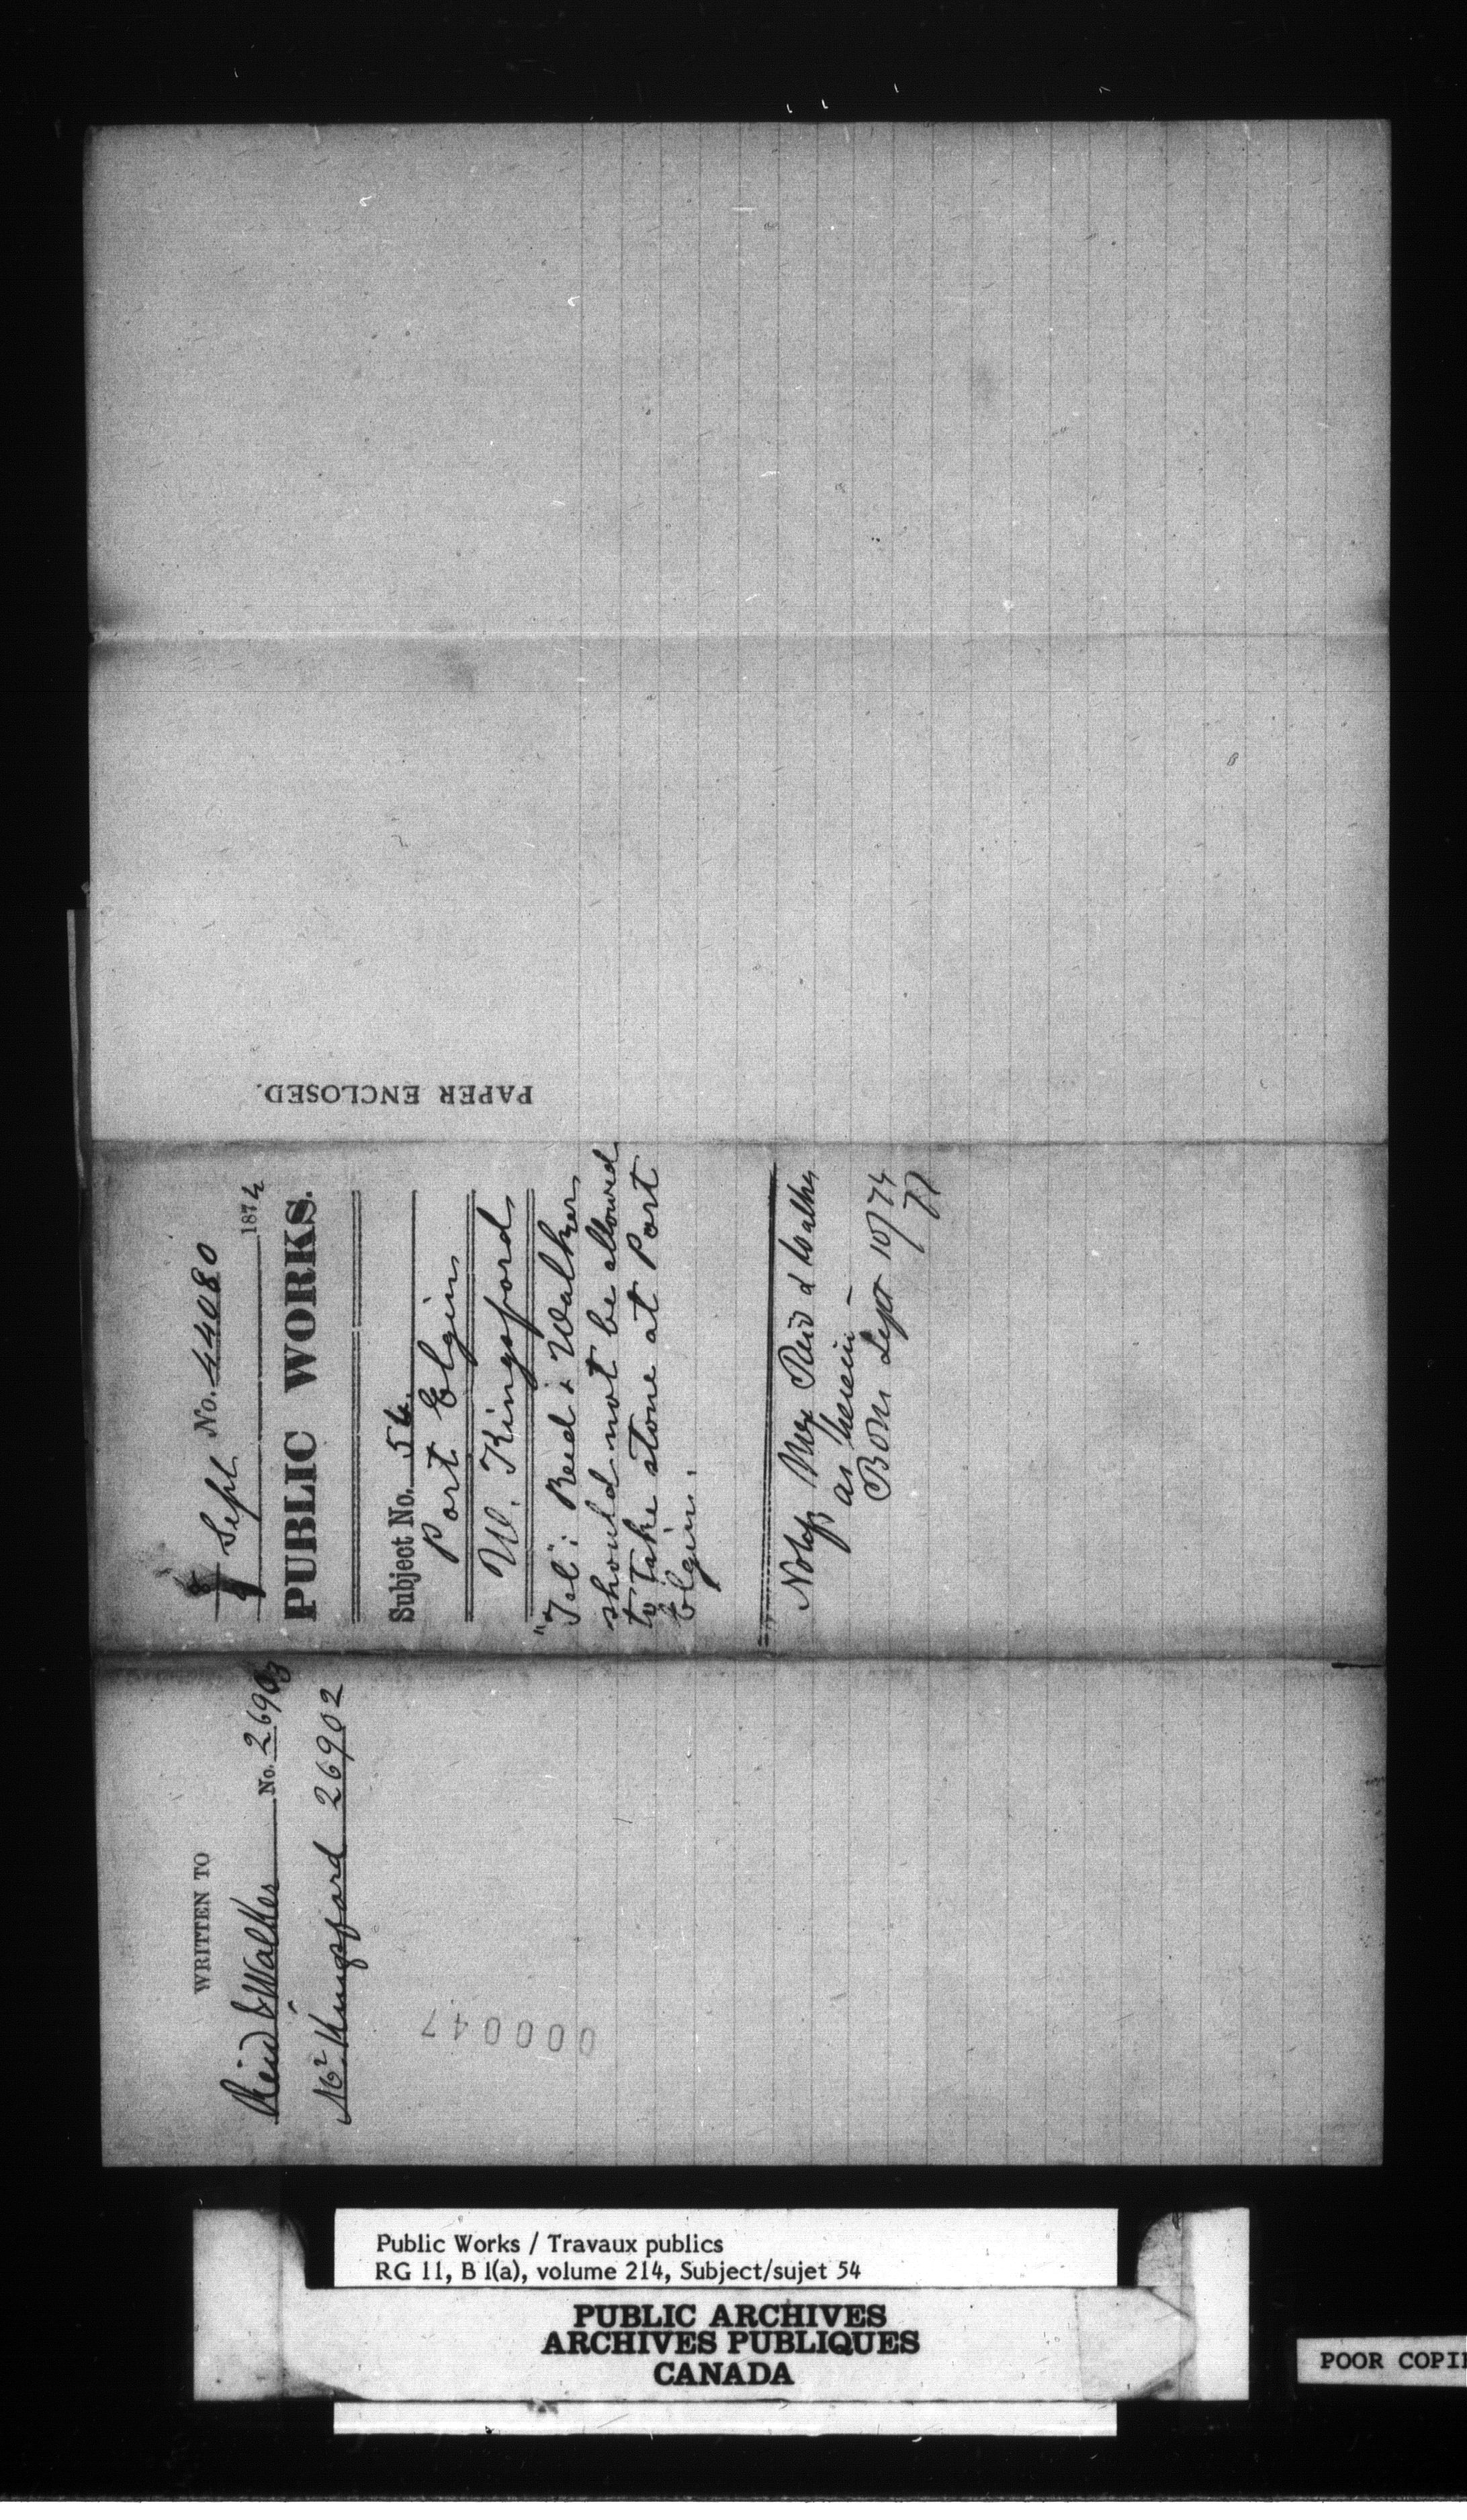 PAPER ENCLOSED.
8
9 Sept No. 44080
1874
PUBLIC WORKS.
Subject No. 54.
Port Elgin
W. Kingsford
"Tel": Reid & Walker
should not be allowed
to take stone at Port
Elgin.
Notify Mess Reid & Walker
as herein –
Sept 10/74
WRITTEN TO
Reid & Walker No. 26903
Mr Kingsford 26902
000047
Public Works / Travaux publics
RG 11, B 1(a), volume 214, Subject/sujet 54
PUBLIC ARCHIVES
ARCHIVES PUBLIQUES
CANADA
POOR COPI